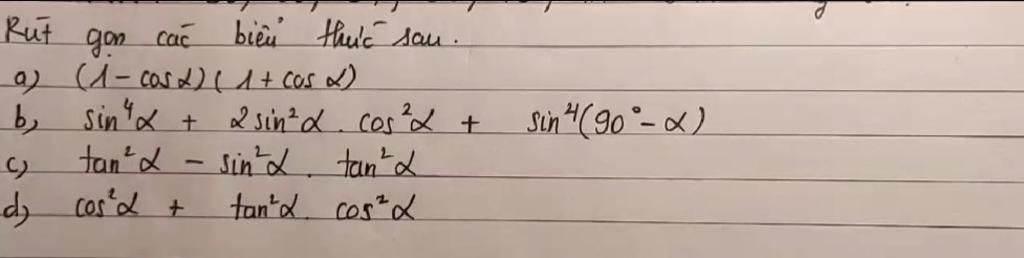 Rút gọn các biểu thức sau.
a) (1 - cos α)(1 + cos α)
b) sin⁴α + 2 sin²α . cos²α + sin⁴(90° - α)
c) tan²α - sin²α . tan²α
d) cos²α + tan²α . cos²α